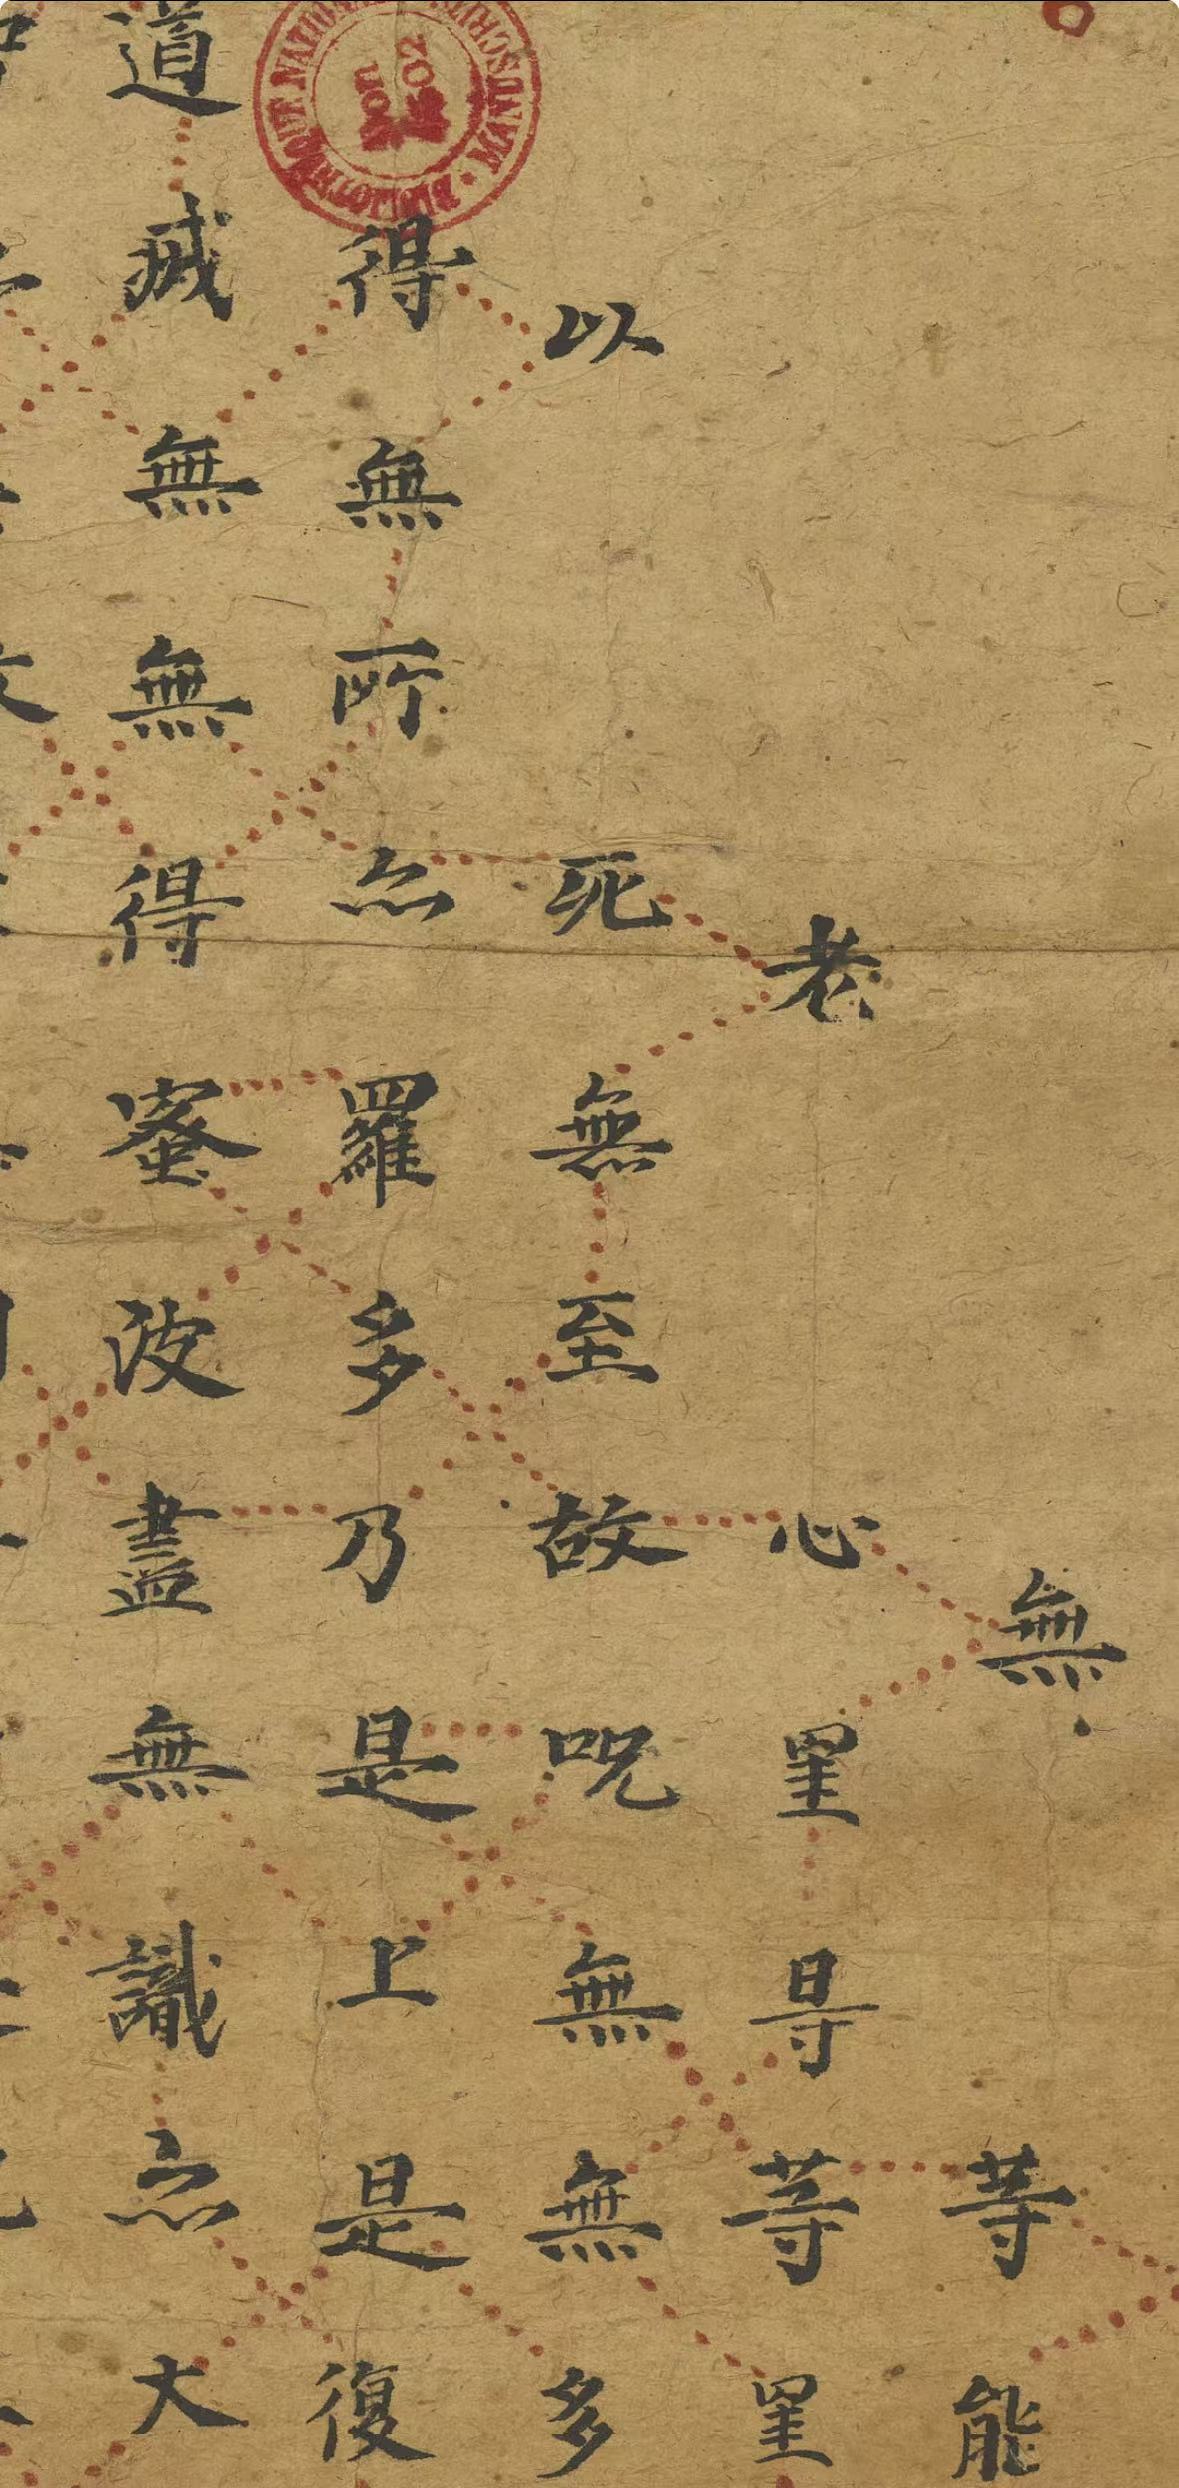 無
等
能
老
心
罣
㝵
等
罣
以
死
無
至
故
呪
無
無
多
得
無
所
亦
羅
多
乃
是
上
是
復
道
滅
無
無
得
蜜
波
盡
無
識
亦
大
MANUSCRITS